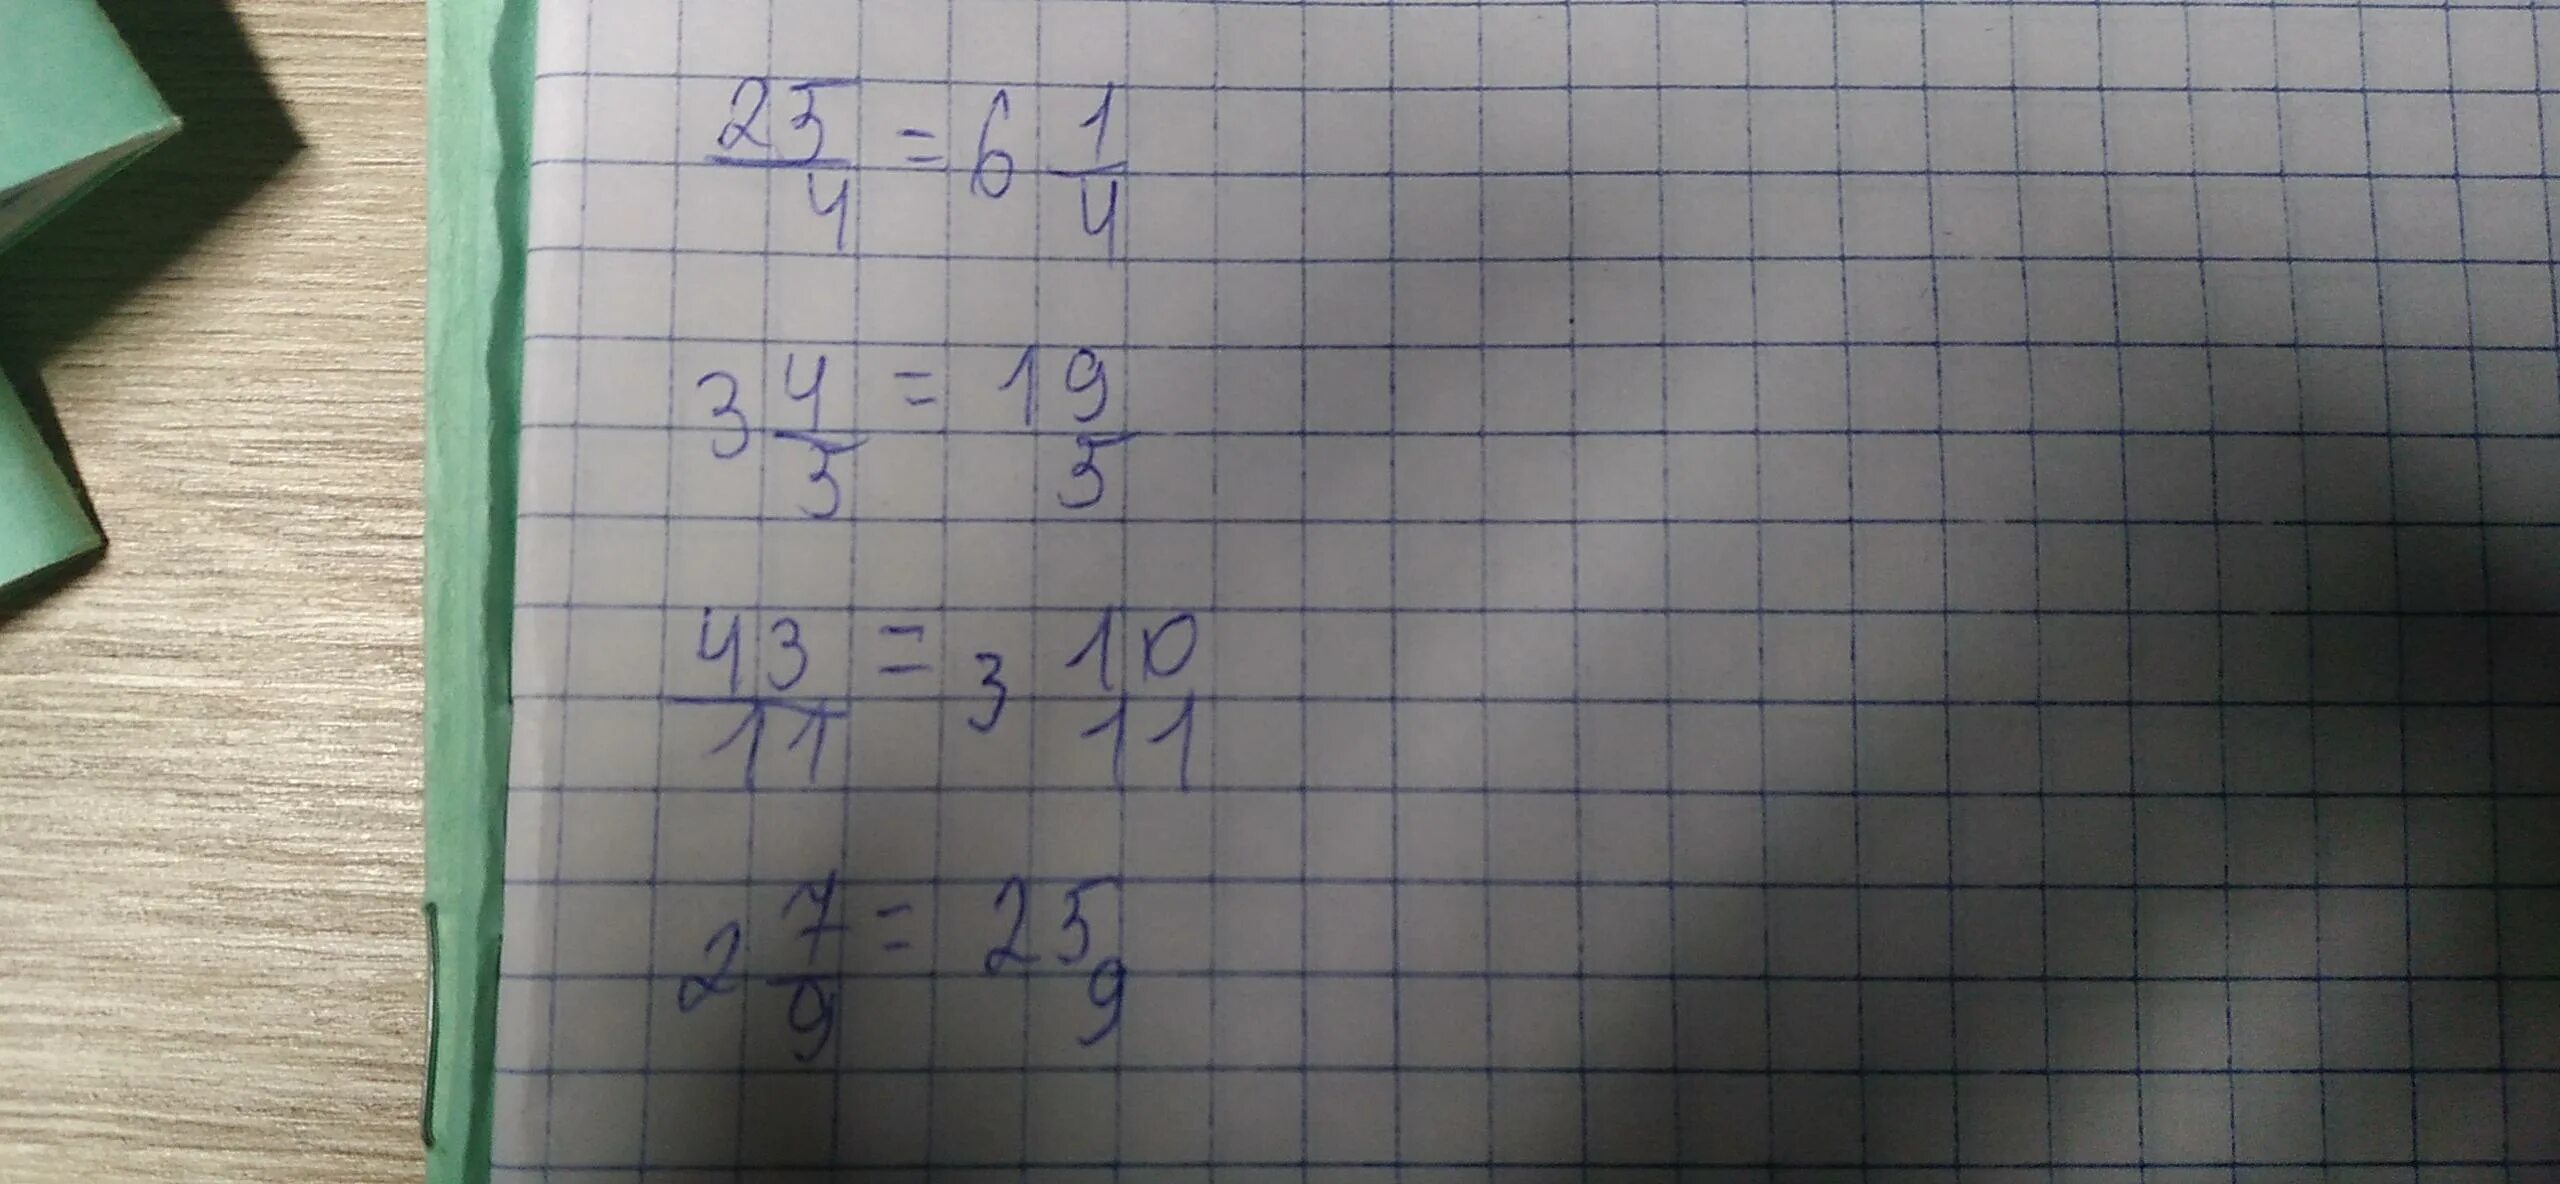 25/4 = 6 1/4
3 4/5 = 19/5
43/11 = 3 10/11
2 7/9 = 25/9